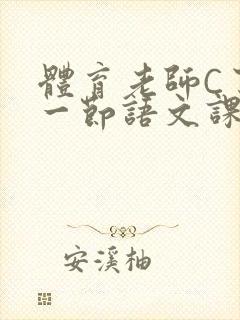 體育老師C
一節語文課
安溪柚